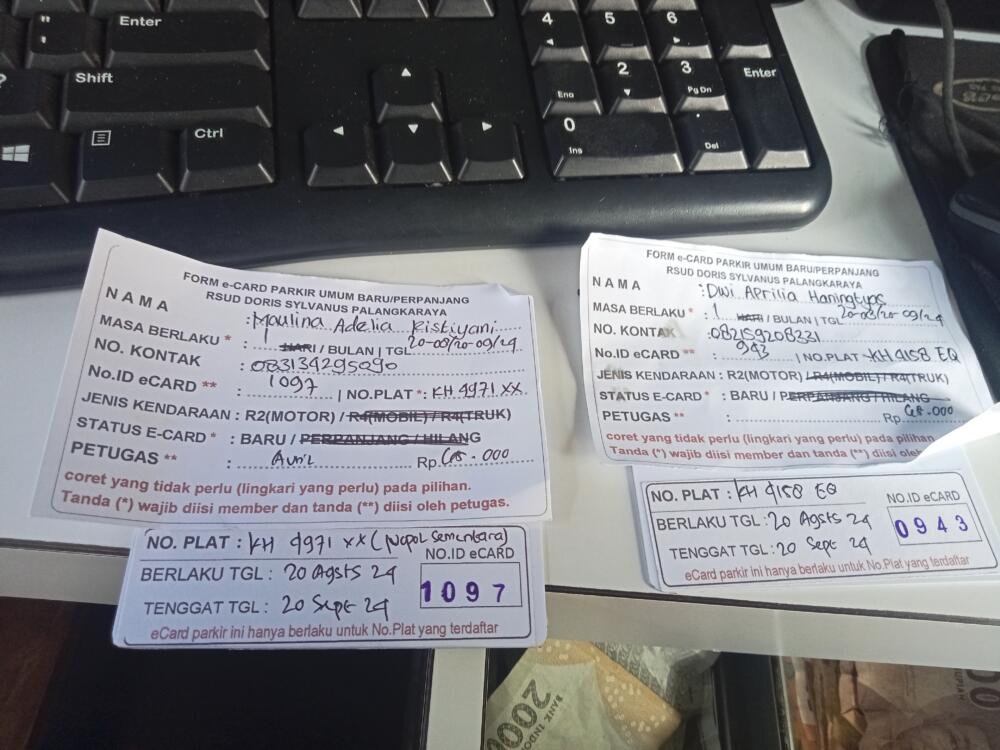 "
'
Enter
4
5
6
?
Shift
Ena
2
3
Pg Dn
Enter
Ctrl
0
Ins
.
Del
FORM e-CARD PARKIR UMUM BARU/PERPANJANG
RSUD DORIS SYLVANUS PALANGKARAYA
NAMA : Maulina Adelia Riskiyani
MASA BERLAKU * : 1 HARI / BULAN | TGL 20-08/20-09/24
NO. KONTAK : 083134295090
No.ID eCARD ** : 1097 | NO.PLAT *: KH 4971 XX
JENIS KENDARAAN : R2(MOTOR) / R4(MOBIL) / R4(TRUK)
STATUS E-CARD * : BARU / PERPANJANG / HILANG
PETUGAS ** : Avril Rp. 65.000
coret yang tidak perlu (lingkari yang perlu) pada pilihan.
Tanda (*) wajib diisi member dan tanda (**) diisi oleh petugas.
NO. PLAT : KH 4971 XX (Nopol Sementara)
BERLAKU TGL : 20 Agsts 24
TENGGAT TGL : 20 Sept 24
NO.ID eCARD
1097
eCard parkir ini hanya berlaku untuk No.Plat yang terdaftar
FORM e-CARD PARKIR UMUM BARU/PERPANJANG
RSUD DORIS SYLVANUS PALANGKARAYA
NAMA : Dwi Aprilia Haningtyas
MASA BERLAKU * : 1 HARI / BULAN | TGL 20-08/20-09/24
NO. KONTAK : 082159208331
No.ID eCARD ** : 943 | NO.PLAT *: KH 4158 EQ
JENIS KENDARAAN : R2(MOTOR) / R4(MOBIL) / R4(TRUK)
STATUS E-CARD * : BARU / PERPANJANG / HILANG
PETUGAS ** : Rp 65.000
coret yang tidak perlu (lingkari yang perlu) pada pilihan.
Tanda (*) wajib diisi member dan tanda (**) diisi oleh
NO. PLAT : KH 4158 EQ
BERLAKU TGL : 20 Agsts 24
TENGGAT TGL : 20 Sept 24
NO.ID eCARD
0943
eCard parkir ini hanya berlaku untuk No.Plat yang terdaftar
BANK INDO
2000
RUPIAH